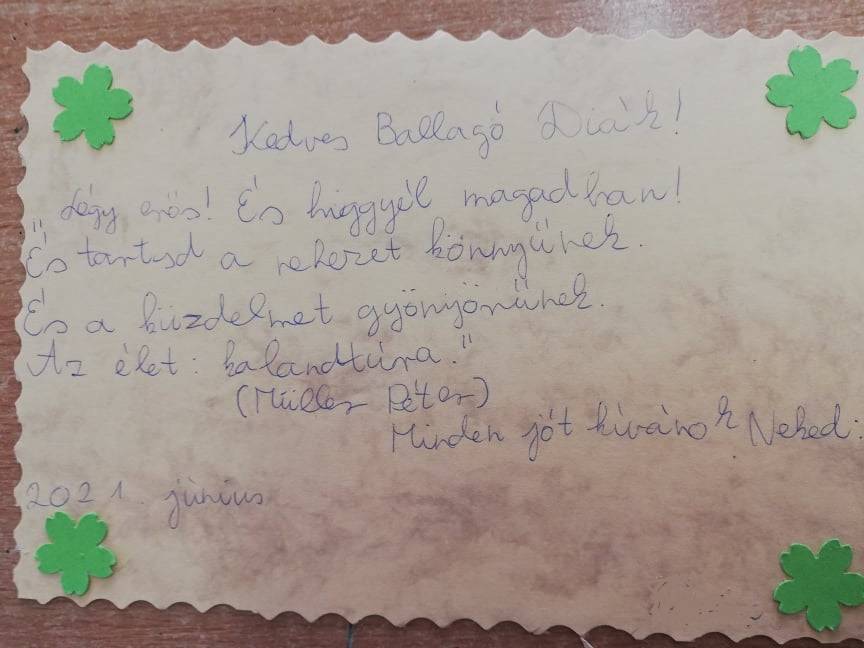 Kedves Ballagó Diák!
„Légy erős! És higgyél magadban!
És tartsd a nehezet könnyűnek.
És a küzdelmet gyönyörűnek.
Az élet: kalandtúra."
(Müller Péter)
Minden jót kívánok Neked:
2021. június